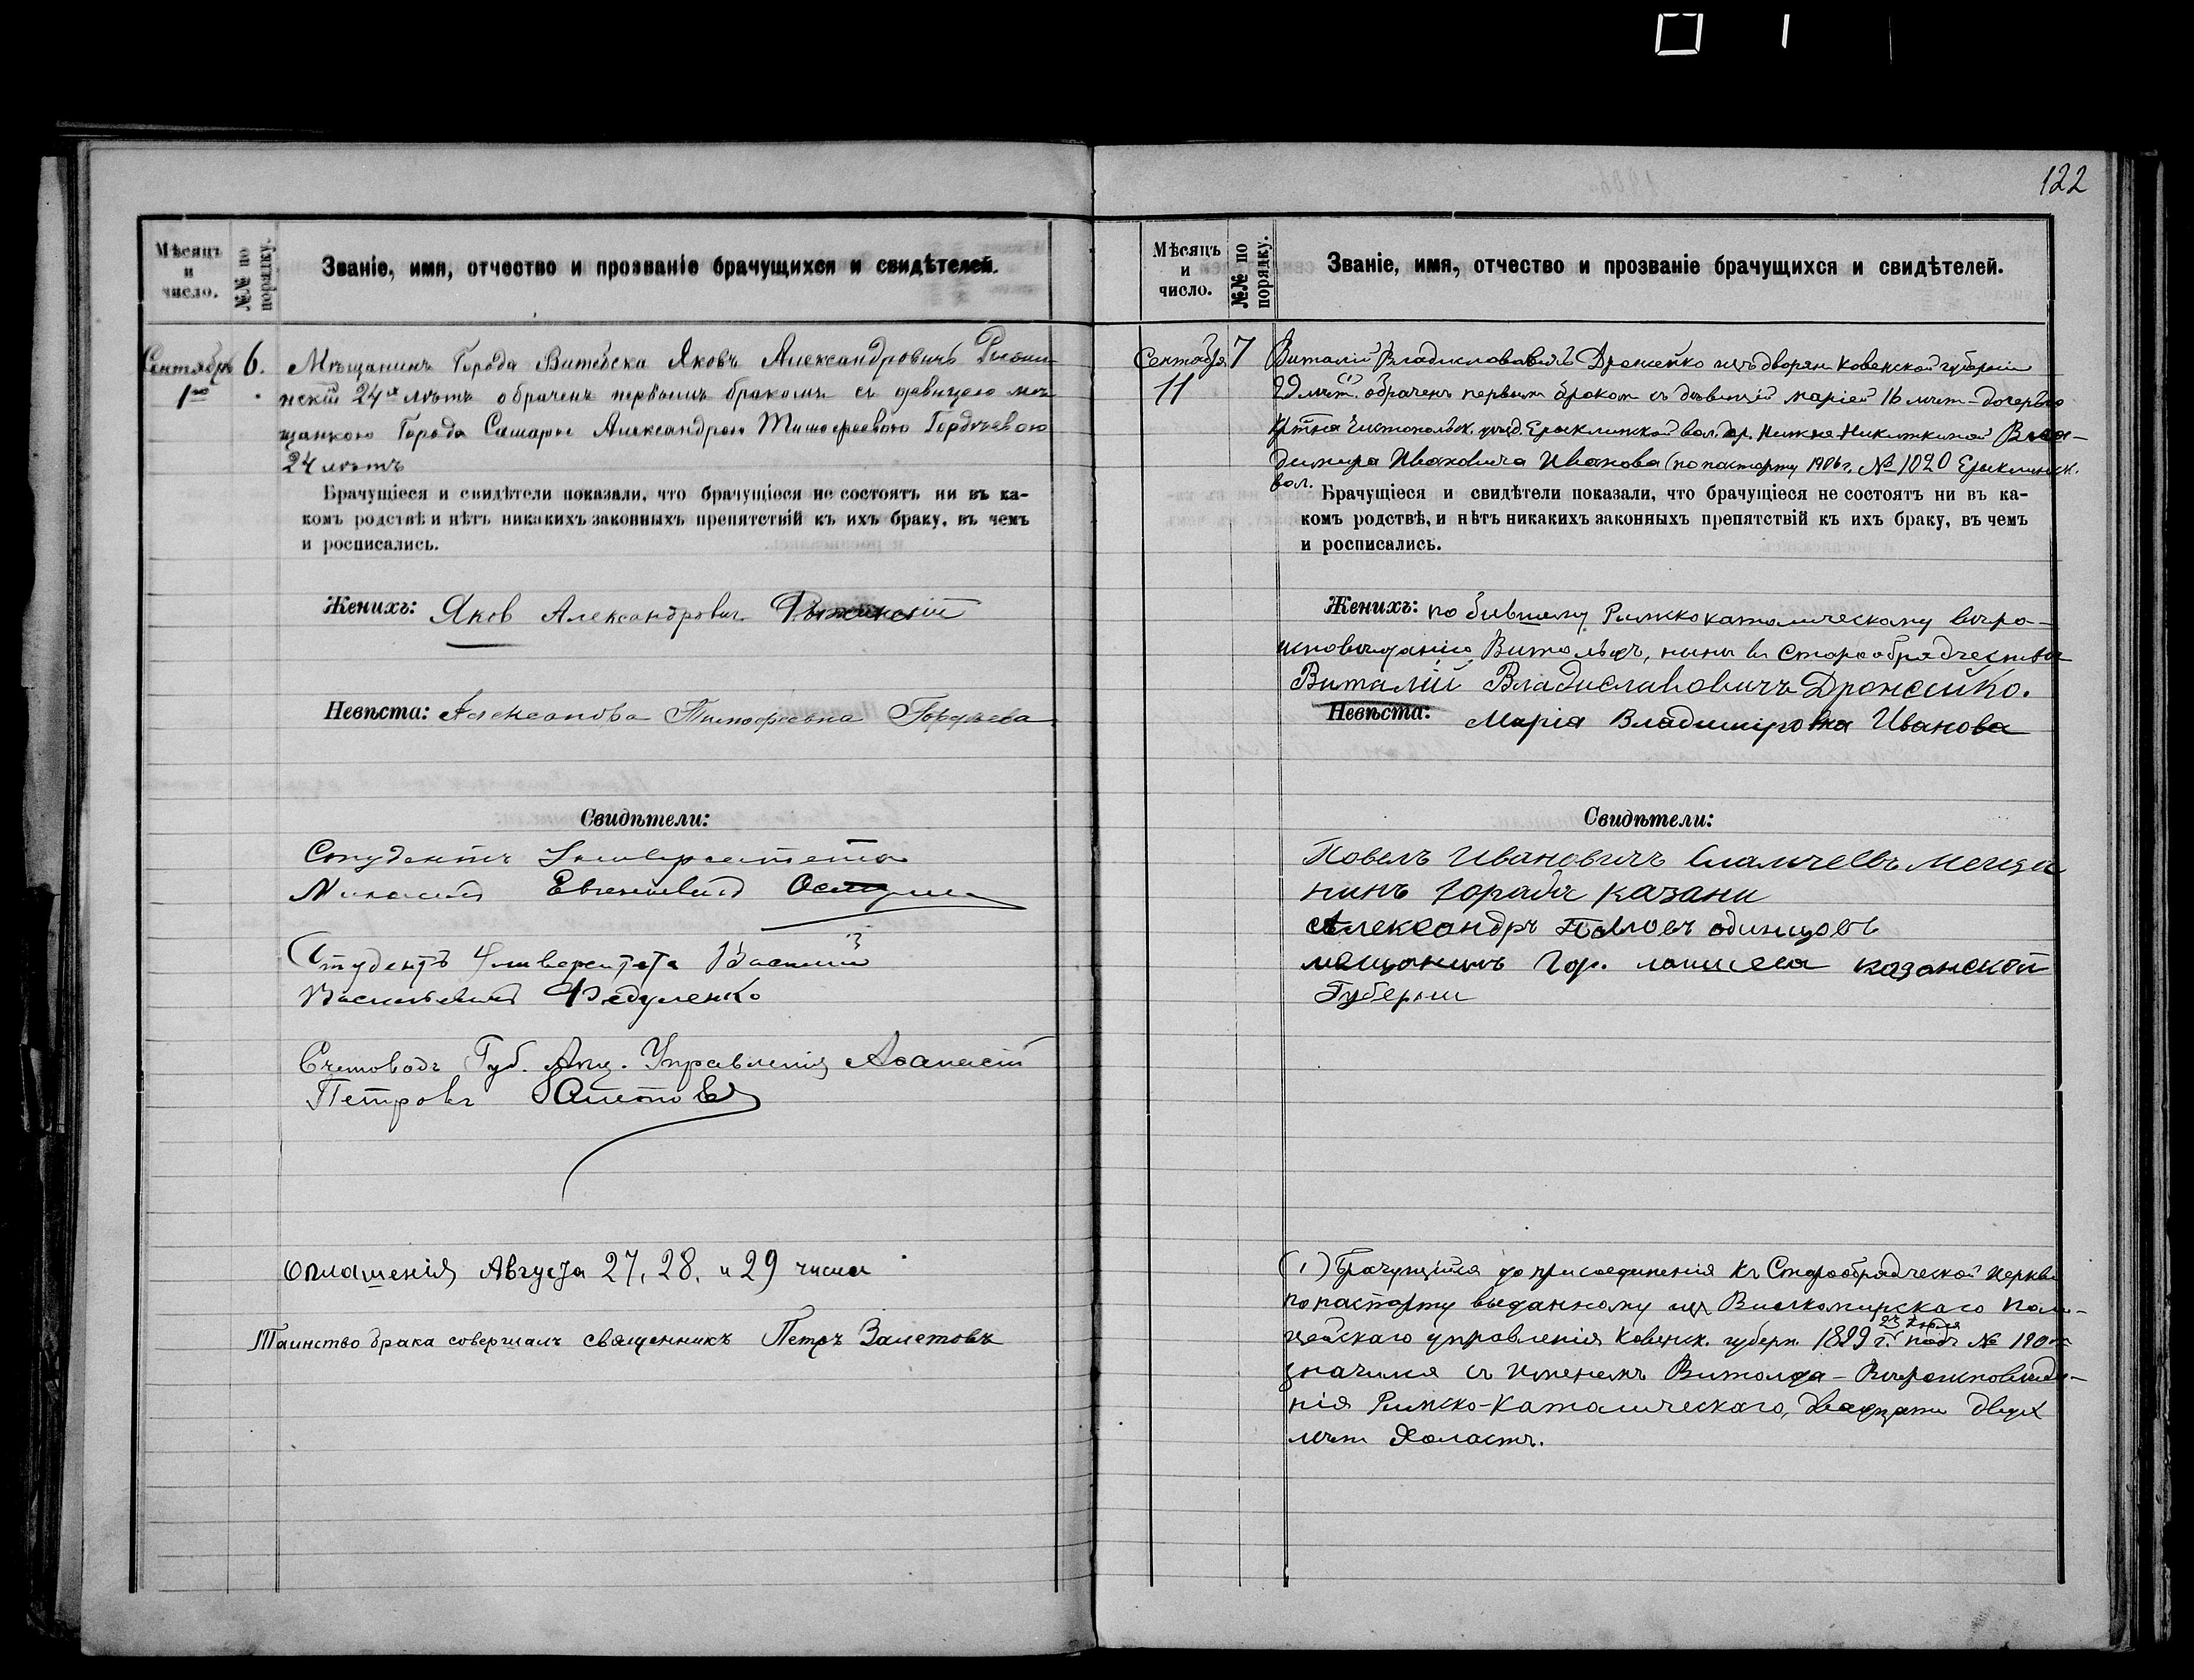 122
Мѣсяцъ и число.
№№ по порядку.
Званіе, имя, отчество и прозваніе брачущихся и свидѣтелей.
Сентябрь 6. Мѣщанинъ Города Витебска Яковъ Александровичъ
1го нскій 24х лѣтъ обрачен первымъ бракомъ съ дѣвицею мѣ
щанкою Города Самары Александрою Тимофеевою Гордѣевою
24 лѣтъ
Брачущіеся и свидѣтели показали, что брачущіеся не состоятъ ни въ ка-
комъ родствѣ и нѣтъ никакихъ законныхъ препятствій къ ихъ браку, въ чемъ
и росписались.
Женихъ: Яков Александрович
Невѣста: Александра Тимофеевна Гордѣева
Свидѣтели:
Студентъ Университета
Студентъ Университета Василий
Васильевич Федуленко
Счетоводъ Губ. Акц. Управленія Аѳанасій
Петровъ
Оглашенія Августа 27, 28, и 29 числа
Таинство брака совершалъ священникъ Петръ Залетовъ
Мѣсяцъ и число.
№№ по порядку.
Званіе, имя, отчество и прозваніе брачущихся и свидѣтелей.
Сентября 7 Виталій Владиславовичъ Дронсейко изъ дворян Ковенской губерніи
11 29 лѣт. (1) обраченъ первым браком съ дѣвицей Маріей 16 лѣт - дочерью
кр-на Чистопольск. уѣзд. Ерыклинской вол. дер. Нижне-Никиткиной Вла-
димира Ивановича Иванова (по паспорту 1906 г. № 1020 Ерыклинск.
вол.
Брачущіеся и свидѣтели показали, что брачущіеся не состоятъ ни въ ка-
комъ родствѣ, и нѣтъ никакихъ законныхъ препятствій къ ихъ браку, въ чемъ
и росписались.
Женихъ: по бывшему Римскокатолическому вѣро-
исповѣданію Витольдъ, нынѣ в Старообрядчествѣ
Виталій Владиславовичъ Дронсейко.
Невѣста: Марія Владимировна Иванова
Свидѣтели:
Павелъ Ивановичъ меща
нинъ города казани
Александръ одинцовъ
мещанинъ гор. лаишева казанской
Губернии
(1) Брачущійся до присоединенія къ Старообрядческой церкви
по паспорту выданному изъ Вилкомирскаго поли-
цейскаго управленія Ковенск. губерн. 1899 г. 23 Июля подъ №
значился съ именемъ Витольда - Вѣроисповѣда-
нія Римско-Католическаго, двадцати двух
лѣт Холостъ.